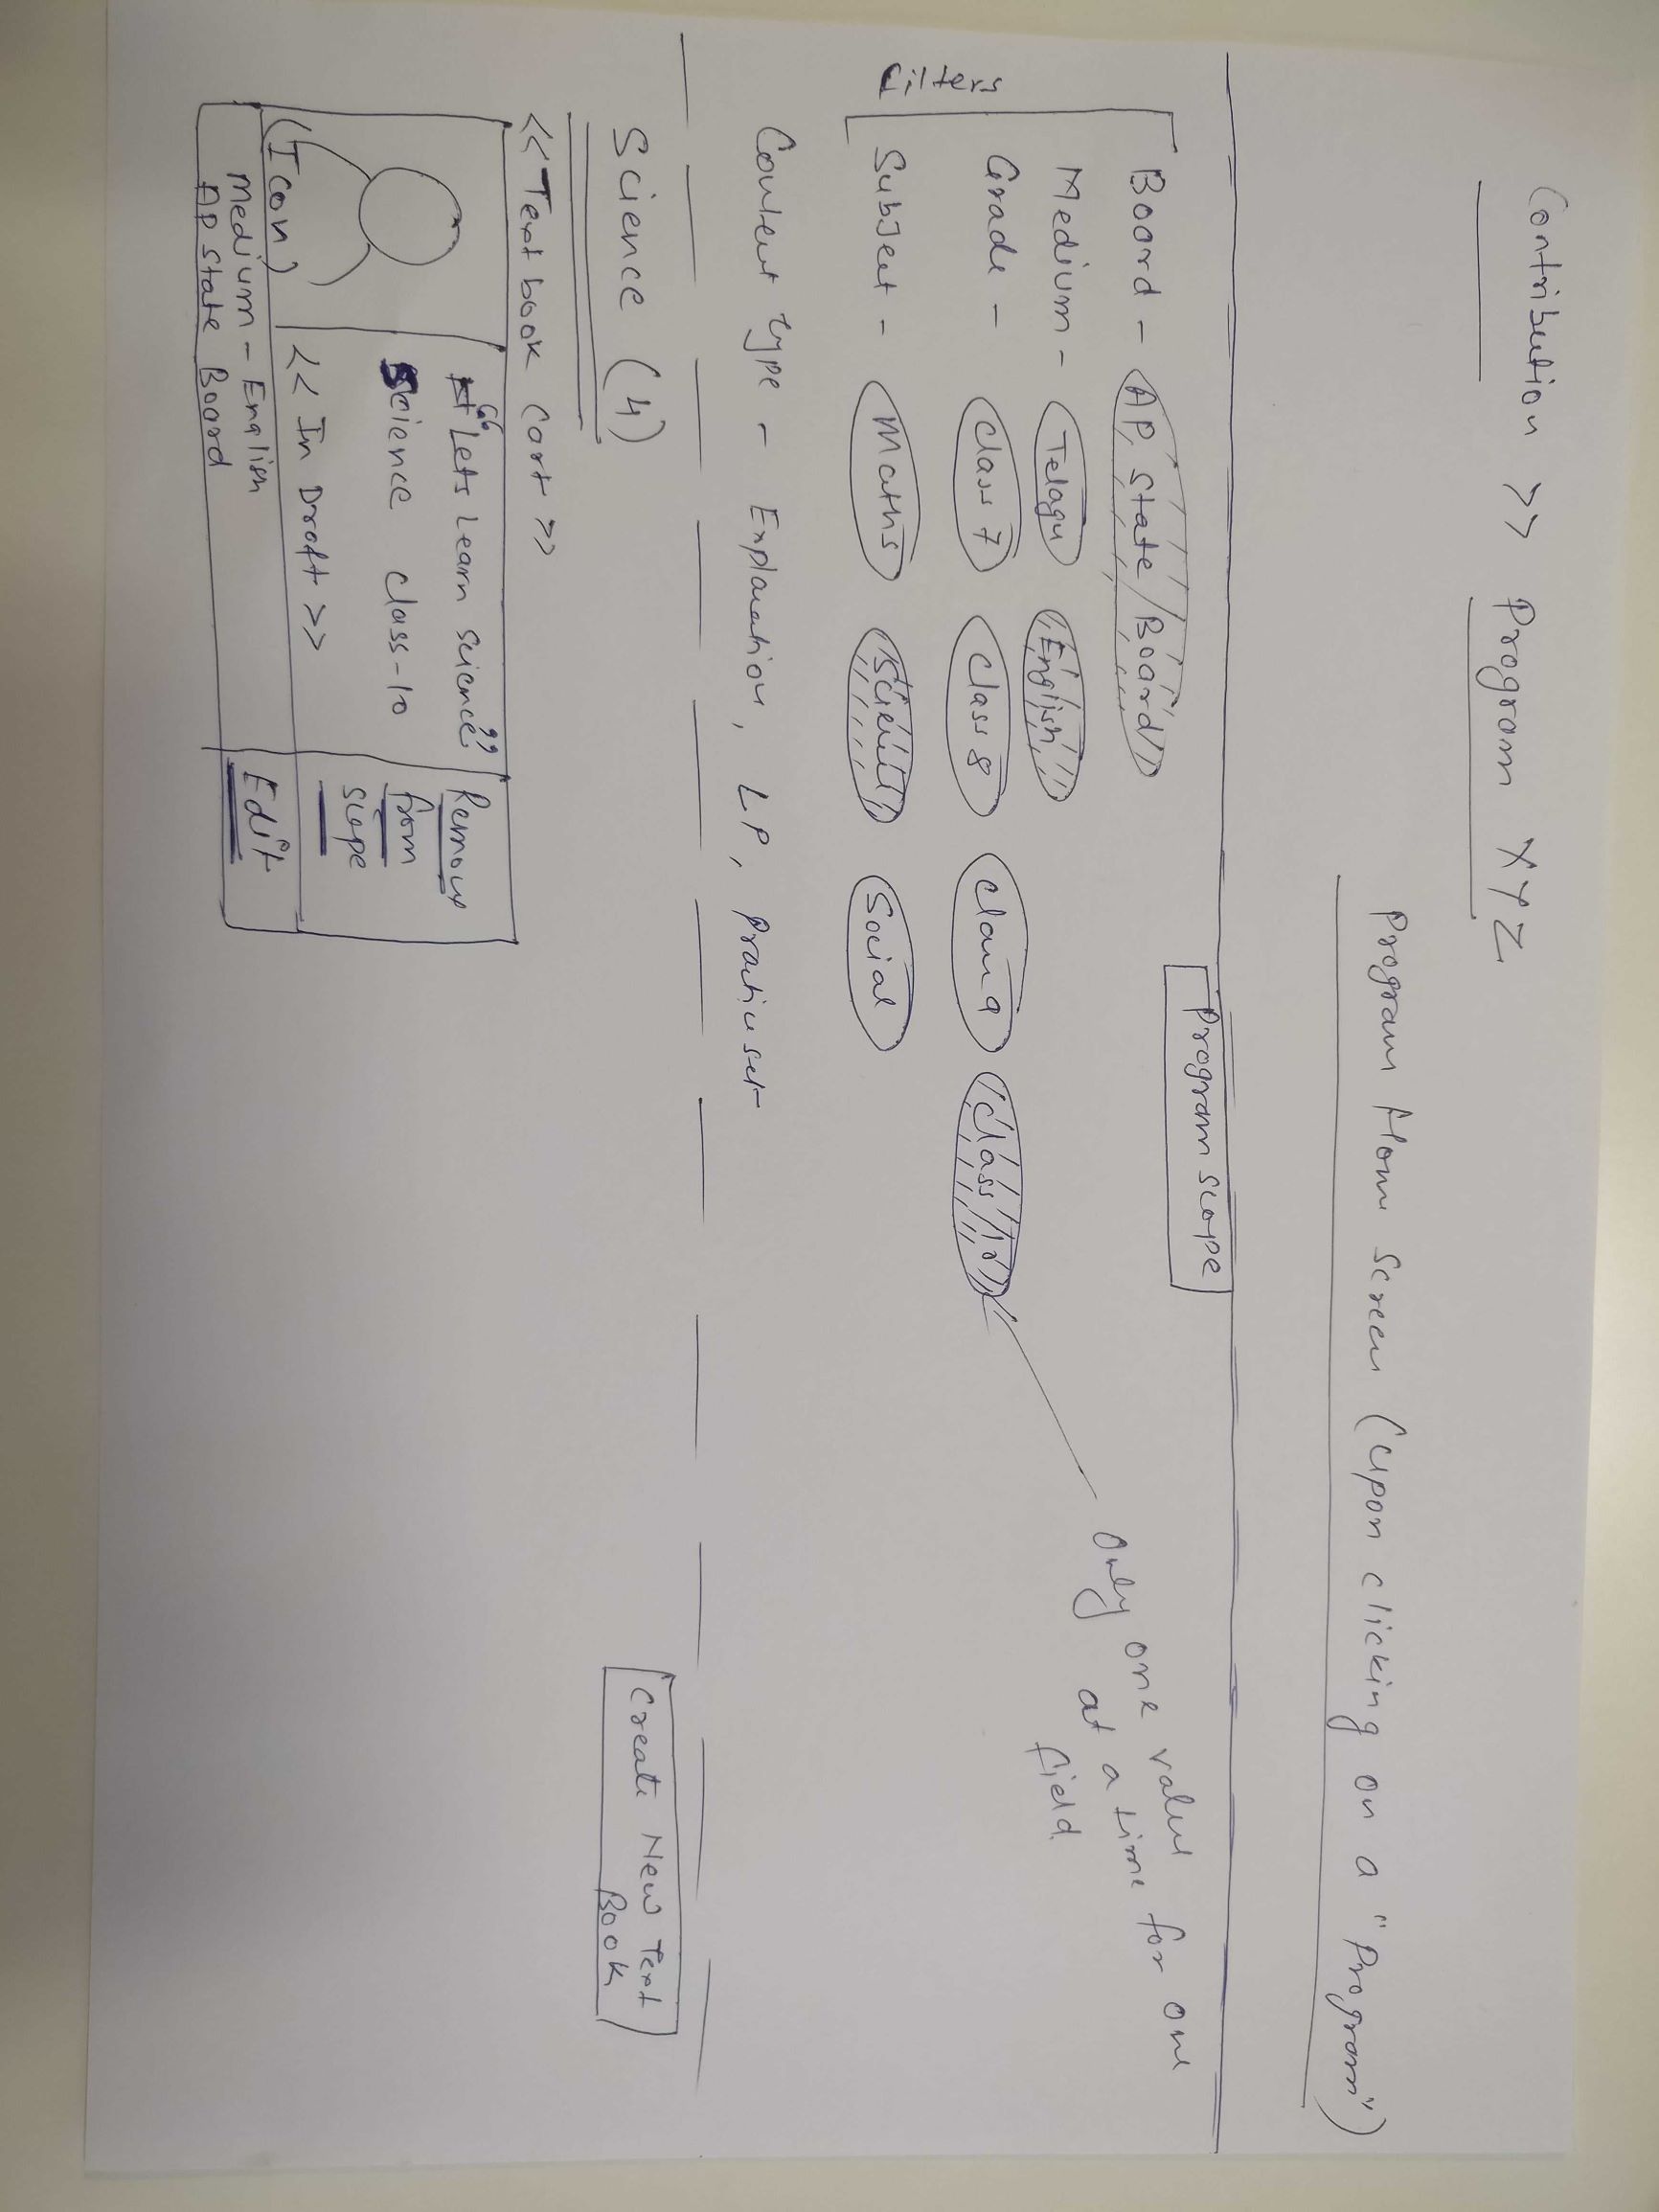 Contribution >> Program XYZ
Program Home Screen (Upon clicking on a "Program")
Program scope
Filters
Board - AP State Board
Medium - Telagu English
Grade - Class 7 Class 8 Class 9 Class 10
Only one value
at a time for one
field
Subject - Maths Science Social
Content type - Explanation, LP, Practice set
Science (4)
Create New Text
Book
<< Text book Cart >>
"Lets Learn Science"
Science Class-10
<< In Draft >>
(Icon)
Remove
from
scope
Medium - English
AP State Board
Edit